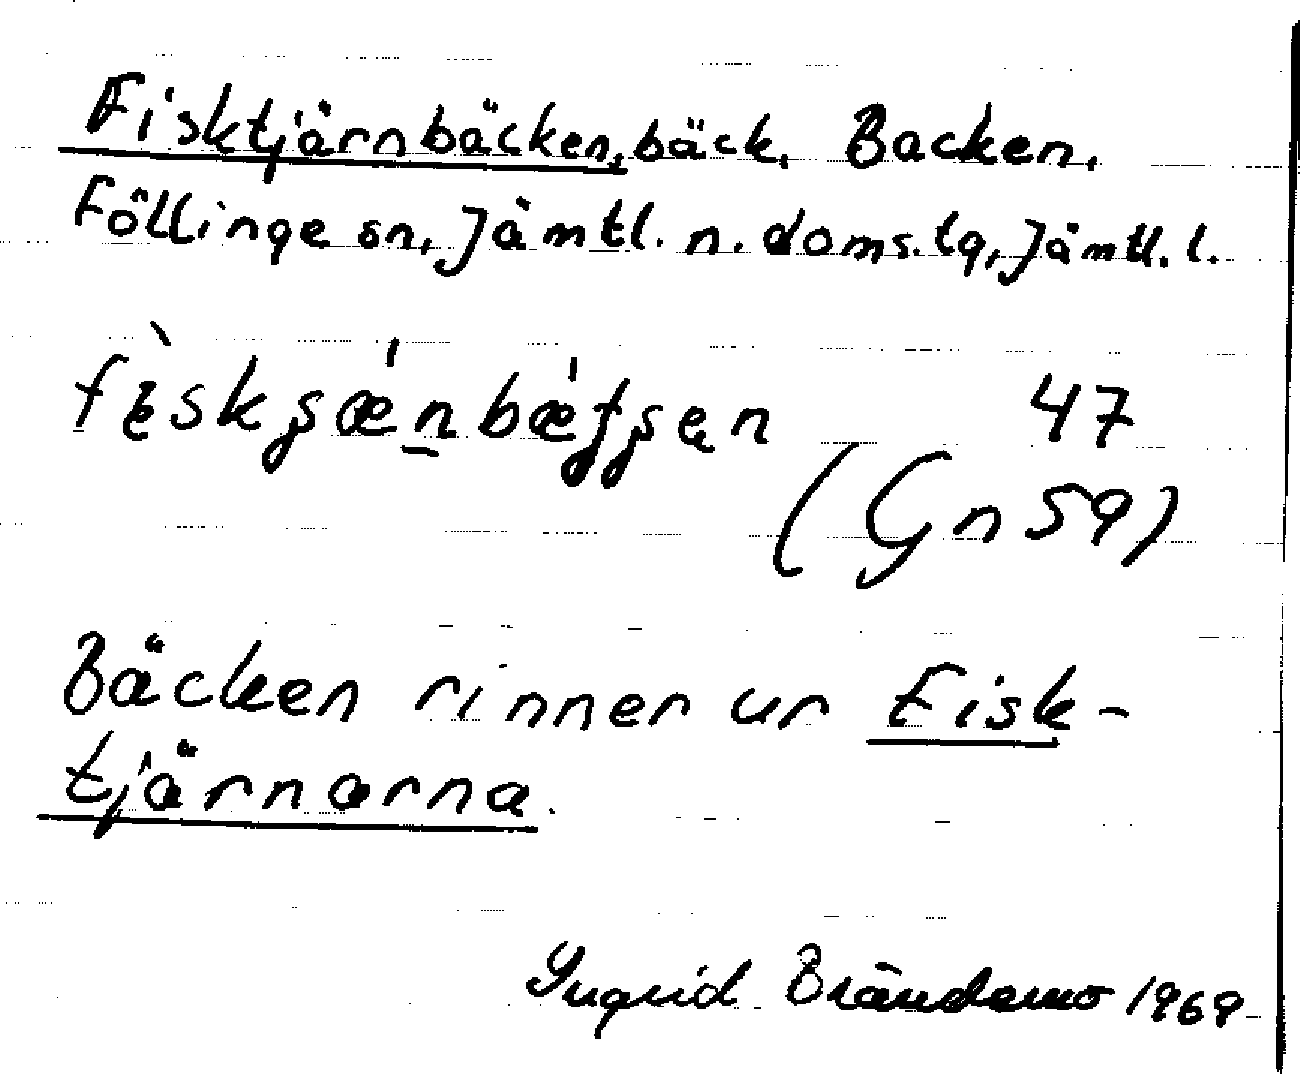 Fisktjärnbäcken, bäck. Backen.
Föllinge sn, Jämtl. n. doms.lg, Jämtl. l.
fè̬̖skʂǽn̠bǽʈʂen 47
(Gn 59)
Bäcken rinner ur Fisk-
tjärnarna.
Ingrid Brändemo 1969